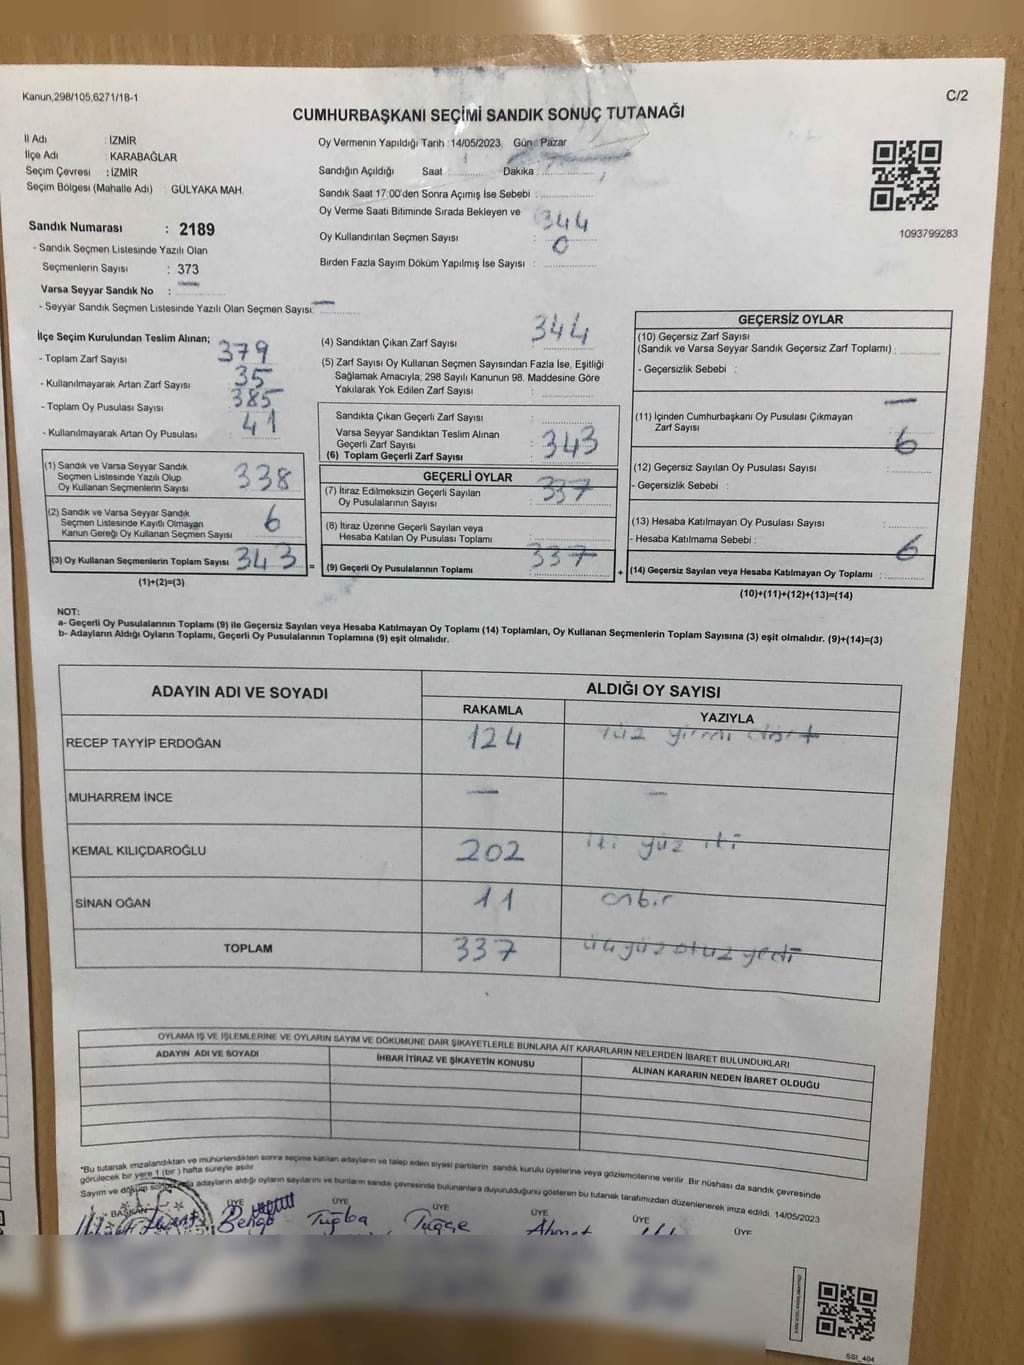 Kanun,298/105,6271/18-1
C/2
CUMHURBAŞKANI SEÇİMİ SANDIK SONUÇ TUTANAĞI
İl Adı : İZMİR
İlçe Adı : KARABAĞLAR
Seçim Çevresi : İZMİR
Seçim Bölgesi (Mahalle Adı) GÜLYAKA MAH.
Sandık Numarası : 2189
- Sandık Seçmen Listesinde Yazılı Olan
Seçmenlerin Sayısı : 373
Varsa Seyyar Sandık No : —
- Seyyar Sandık Seçmen Listesinde Yazılı Olan Seçmen Sayısı: —
Oy Vermenin Yapıldığı Tarih :14/05/2023 Gün : Pazar
Sandığın Açıldığı Saat : Dakika :
Sandık Saat 17:00'den Sonra Açımış İse Sebebi :
Oy Verme Saati Bitiminde Sırada Bekleyen ve
Oy Kullandırılan Seçmen Sayısı : 344
Birden Fazla Sayım Döküm Yapılmış İse Sayısı : 0
1093799283
İlçe Seçim Kurulundan Teslim Alınan;
- Toplam Zarf Sayısı : 379
- Kullanılmayarak Artan Zarf Sayısı : 35
- Toplam Oy Pusulası Sayısı : 385
- Kullanılmayarak Artan Oy Pusulası : 41
(1) Sandık ve Varsa Seyyar Sandık
Seçmen Listesinde Yazılı Olup
Oy Kullanan Seçmenlerin Sayısı : 338
(2) Sandık ve Varsa Seyyar Sandık
Seçmen Listesinde Kayıtlı Olmayan
Kanun Gereği Oy Kullanan Seçmen Sayısı : 6
(3) Oy Kullanan Seçmenlerin Toplam Sayısı : 343 =
(1)+(2)=(3)
(4) Sandıktan Çıkan Zarf Sayısı : 344
(5) Zarf Sayısı Oy Kullanan Seçmen Sayısından Fazla İse, Eşitliği
Sağlamak Amacıyla; 298 Sayılı Kanunun 98. Maddesine Göre
Yakılarak Yok Edilen Zarf Sayısı :
Sandıkta Çıkan Geçerli Zarf Sayısı :
Varsa Seyyar Sandıktan Teslim Alınan
Geçerli Zarf Sayısı :
(6) Toplam Geçerli Zarf Sayısı : 343
GEÇERLİ OYLAR
(7) İtiraz Edilmeksizin Geçerli Sayılan
Oy Pusulalarının Sayısı : 337
(8) İtiraz Üzerine Geçerli Sayılan veya
Hesaba Katılan Oy Pusulası Toplamı :
(9) Geçerli Oy Pusulalarının Toplamı : 337 +
GEÇERSİZ OYLAR
(10) Geçersiz Zarf Sayısı
(Sandık ve Varsa Seyyar Sandık Geçersiz Zarf Toplamı) :
- Geçersizlik Sebebi :
(11) İçinden Cumhurbaşkanı Oy Pusulası Çıkmayan
Zarf Sayısı : —
(12) Geçersiz Sayılan Oy Pusulası Sayısı : 6
- Geçersizlik Sebebi :
(13) Hesaba Katılmayan Oy Pusulası Sayısı :
- Hesaba Katılmama Sebebi :
(14) Geçersiz Sayılan veya Hesaba Katılmayan Oy Toplamı : 6
(10)+(11)+(12)+(13)=(14)
NOT:
a- Geçerli Oy Pusulalarının Toplamı (9) ile Geçersiz Sayılan veya Hesaba Katılmayan Oy Toplamı (14) Toplamları, Oy Kullanan Seçmenlerin Toplam Sayısına (3) eşit olmalıdır. (9)+(14)=(3)
b- Adayların Aldığı Oyların Toplamı, Geçerli Oy Pusulalarının Toplamına (9) eşit olmalıdır.
ADAYIN ADI VE SOYADI
ALDIĞI OY SAYISI
RAKAMLA YAZIYLA
RECEP TAYYİP ERDOĞAN 124 yüz yirmi dört
MUHARREM İNCE — —
KEMAL KILIÇDAROĞLU 202 iki yüz iki
SİNAN OĞAN 11 onbir
TOPLAM 337 üçyüz otuz yedi
OYLAMA İŞ VE İŞLEMLERİNE VE OYLARIN SAYIM VE DÖKÜMÜNE DAİR ŞİKAYETLERLE BUNLARA AİT KARARLARIN NELERDEN İBARET BULUNDUKLARI
ADAYIN ADI VE SOYADI İHBAR İTİRAZ VE ŞİKAYETİN KONUSU ALINAN KARARIN NEDEN İBARET OLDUĞU
*Bu tutanak imzalandıktan ve mühürlendikten sonra seçime katılan adayların ve talep eden siyasi partilerin sandık kurulu üyelerine veya gözlemcilerine verilir. Bir nüshası da sandık çevresinde
görülecek bir yere 1 (bir ) hafta süreyle asılır
Sayım ve döküm adayların aldığı oyların sayılarını ve bunların sandık çevresinde bulunanlara duyurulduğunu gösteren bu tutanak tarafımızdan düzenlenerek imza edildi. 14/05/2023
BAŞKAN ÜYE ÜYE ÜYE ÜYE ÜYE ÜYE
Tuğba Tuğçe Ahmet
SSI_404